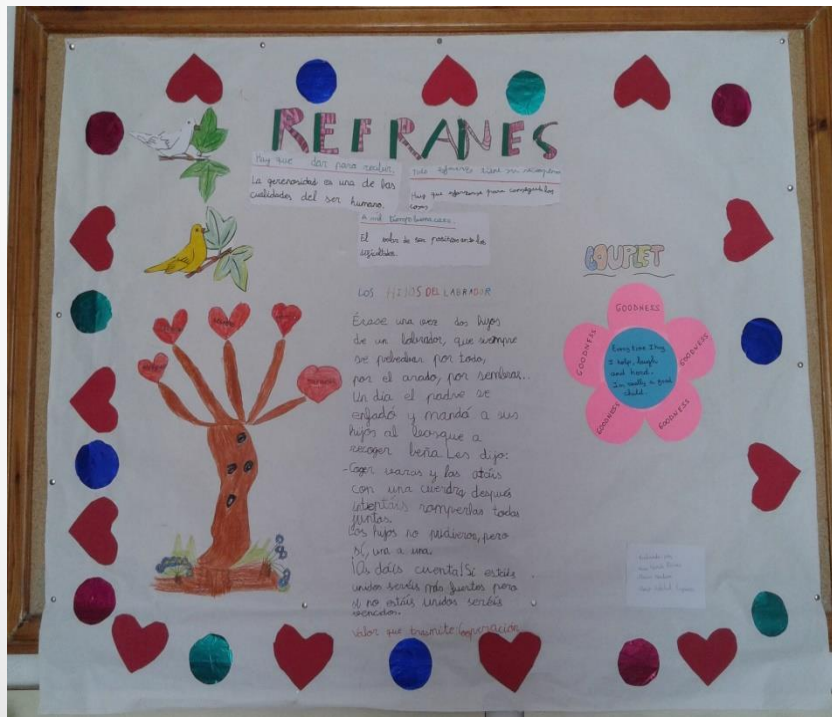 REFRANES
Hay que dar para recibir.
La generosidad es una de las
cualidades del ser humano.
esfuerzo tiene su recompensa
Hay que esforzarse para conseguir las
cosas
El valor de ser positivo ante las
dificultades
LOS HIJOS DEL LABRADOR
Érase una vez dos hijos
de un labrador, que siempre
se peleaban por todo,
por el arado, por sembrar...
Un día el padre se
enfadó y mandó a sus
hijos al bosque a
recoger leña. Les dijo:
-Coger varas y las atáis
con una cuerda después
intentáis romperlas todas
juntas.
Los hijos no pudieron, pero
sí, una a una.
¡Os dais cuenta! Si estáis
unidos seréis más fuertes pero
si no estáis unidos seréis
vencidos.
Valor que trasmite: Cooperación
COUPLET
GOODNESS
GOODNESS
GOODNESS
GOODNESS
GOODNESS
Every time I try
I help, laugh
and
I'm really a good
child.